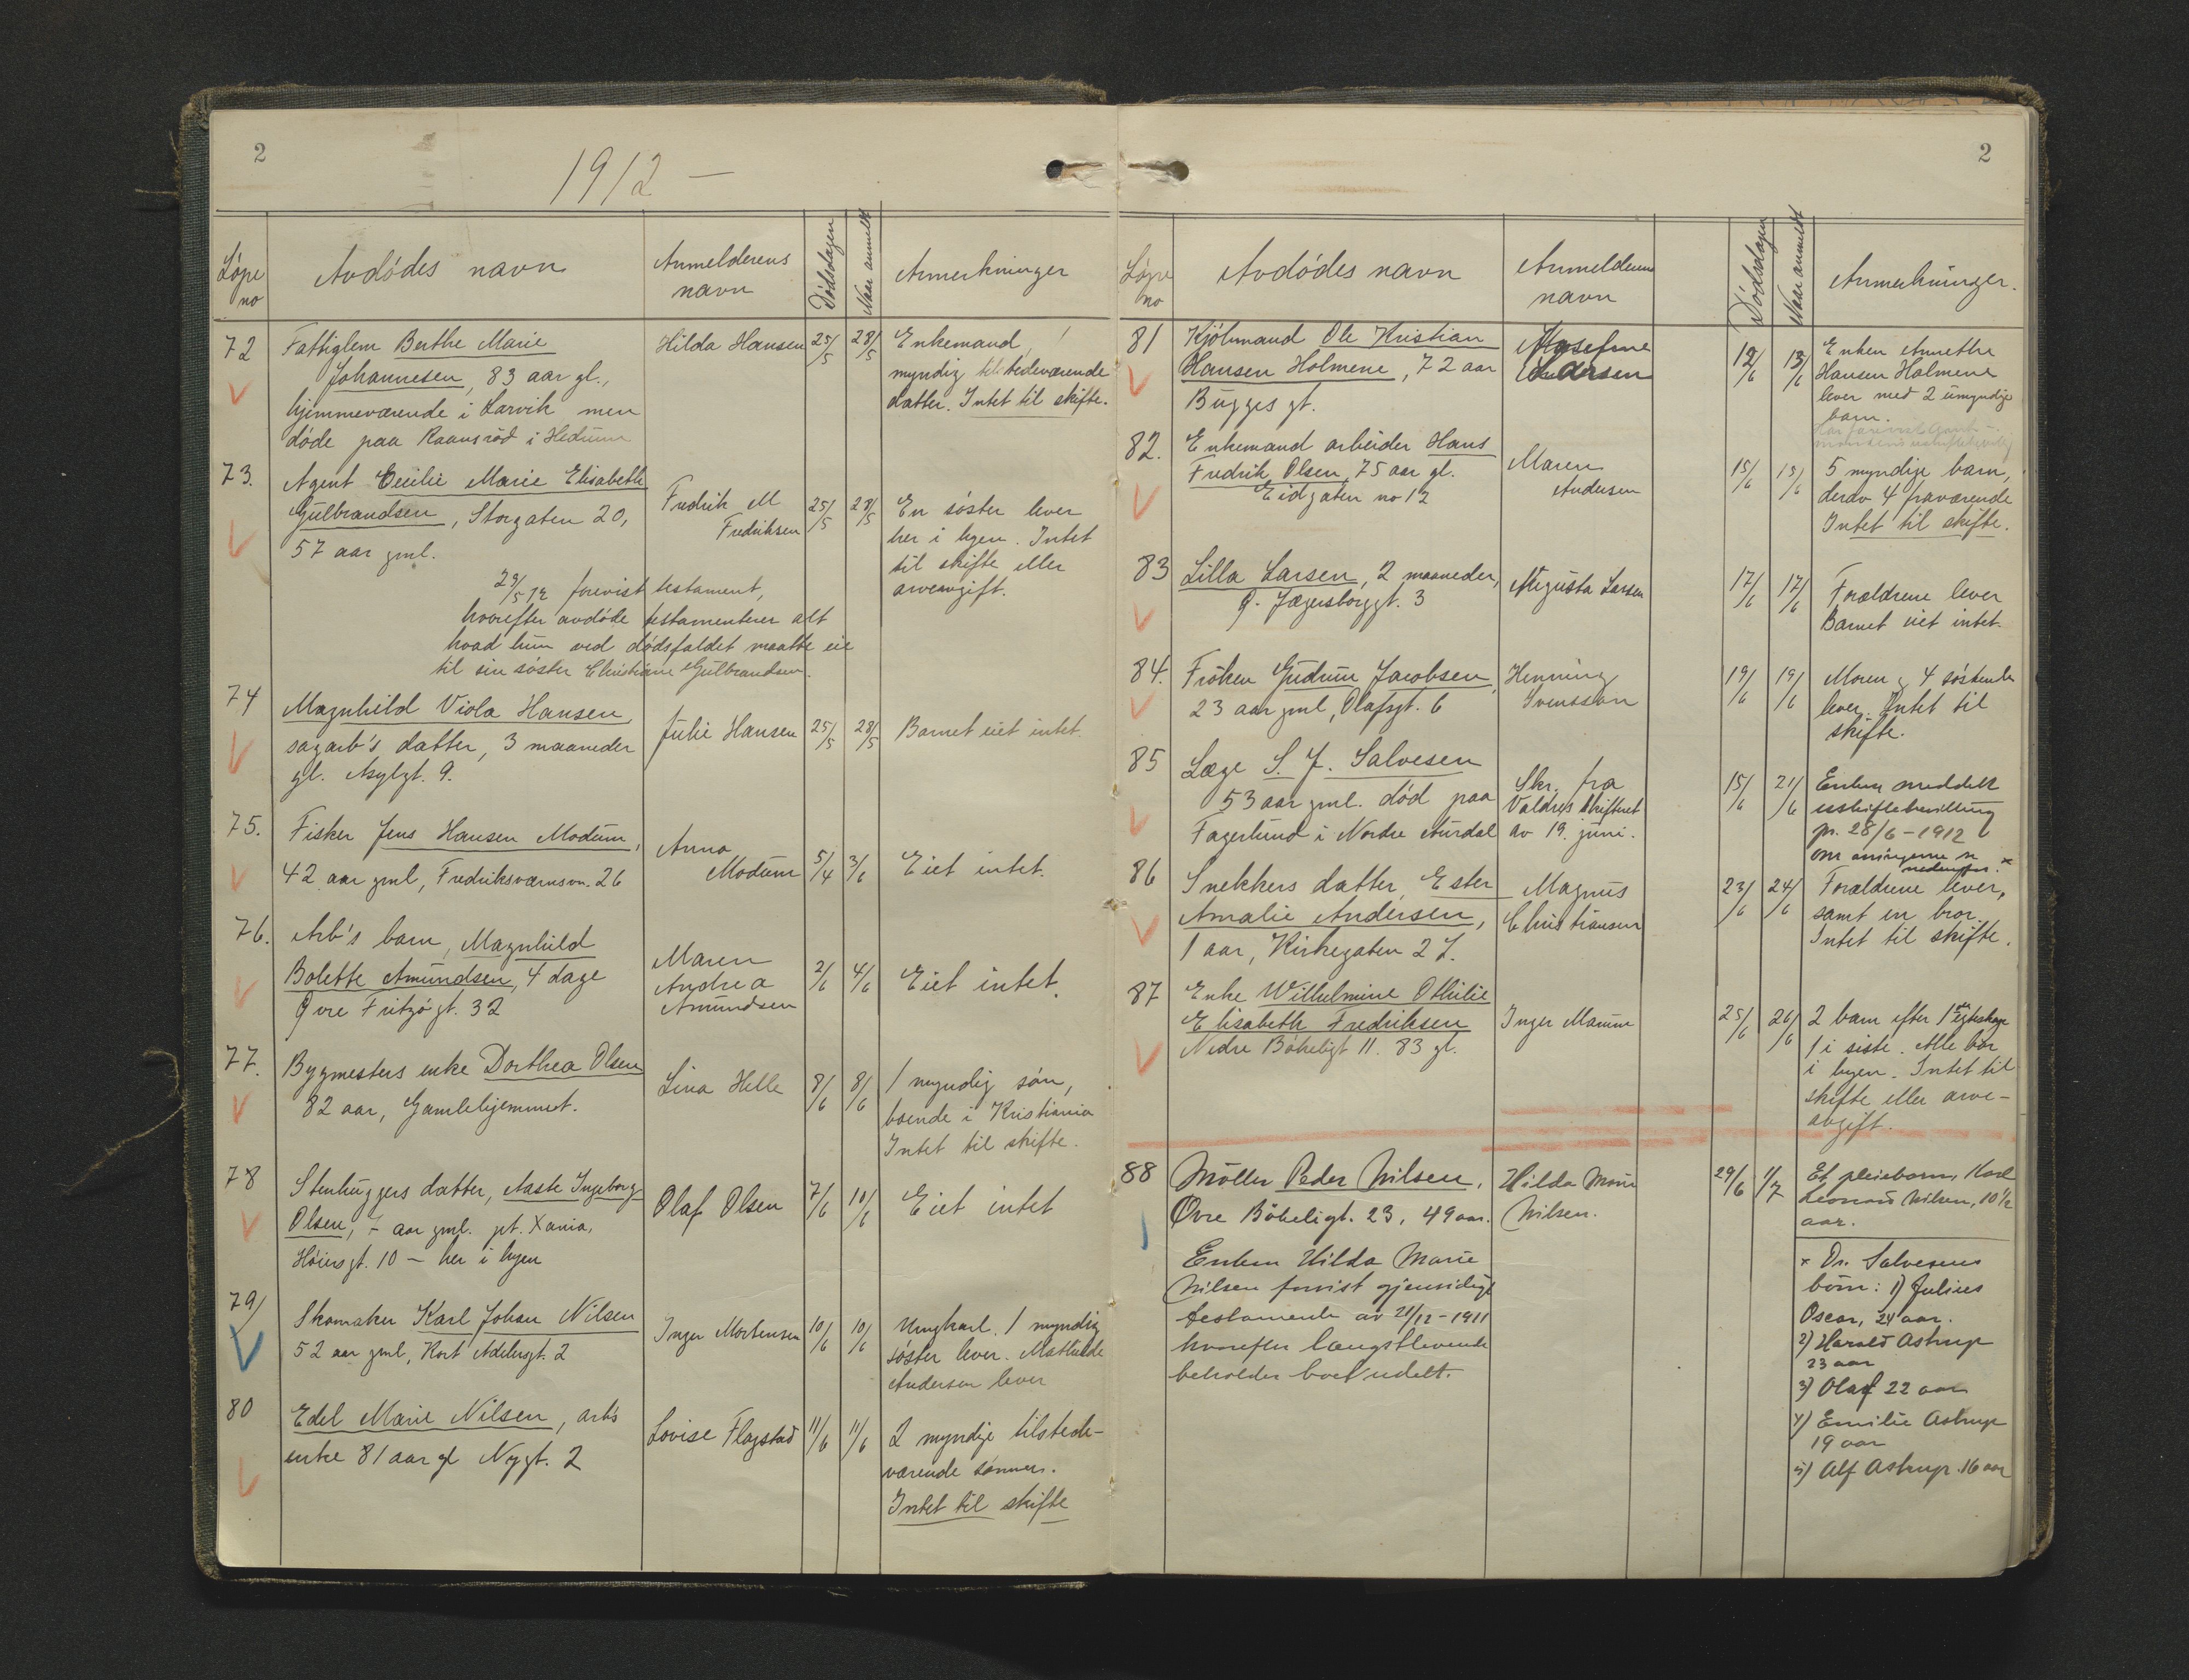 2
1912 —
Löpe no
Avdödes navn
Anmelderens navn
Dödsdagen
Naar anmeldt
Anmerkninger
72
Fattiglem Berthe Marie
Johannesen, 83 aar gl.,
hjemmeværende i Larvik men
döde paa Raansröd i Hedrum
Hilda Hansen
25/5
28/5
Enkemand,
myndig tilstedeværende
datter. Intet til skifte.
73.
Agent Cecilie Marie Elisabeth
Gulbrandsen, Storgaten 20,
57 aar gml.
Fredrik M
Fredriksen
25/5
28/5
En söster lever
her i byen. Intet
til skifte eller
arveavgift.
29/5 12 forevist testament,
hvorefter avdöde testamenterer alt
hvad hun ved dödsfaldet maatte eie
til sin söster Christiane Gulbrandsen.
74
Magnhild Viola Hansen,
sagarb's datter, 3 maaneder
gl. Asylgt. 9.
Julie Hansen
25/5
28/5
Barnet eiet intet.
75.
Fisker Jens Hansen Modum,
42 aar gml, Fredriksværnsvn. 26
Anna
Modum
5/4
3/6
Eiet intet.
76.
Arb's barn, Magnhild
Bolette Amundsen, 4 dage
Øvre Fritzögt. 32
Maren
Andrea
Amundsen
2/6
4/6
Eiet intet.
77.
Bygmesters enke Dorthea Olsen
82 aar, Gamlehjemmet.
Lina Helle
8/6
8/6
1 myndig sön,
boende i Kristiania
Intet til skifte.
78
Stenhuggers datter, Aaste Ingeborg
Olsen, 7 aar gml. pt. Xania,
Höiersgt. 10 – her i byen
Olaf Olsen
7/6
10/6
Eiet intet
79/
Skomaker Karl Johan Nilsen
52 aar gml, Kort Adelersgt. 2
Inger Mortensen
10/6
10/6
Ungkarl. 1 myndig
söster lever. Mathilde
Andersen lever
80
Edel Marie Nilsen, arb's
enke 81 aar gl Nygt. 2
Lovise Flagstad
11/6
11/6
2 myndige tilstede-
værende sönner.
Intet til skifte
2
Löpe no
Avdödes navn
Anmelderens
navn
Dödsdagen
Naar anmeldt
Anmerkninger.
81
Kjöbmand Ole Kristian
Hansen Holmene, 72 aar
Bugges gt.
Josefine
Larsen
12/6
13/6
Enken Annethe
Hansen Holmene
lever med 2 umyndige
barn.
82.
Enkemand arbeider Hans
Fredrik Olsen, 75 aar gl.
Eidgaten no 12
Maren
Andersen
15/6
15/6
5 myndige barn,
derav 4 fraværende
Intet til skifte.
83
Lilla Larsen, 2 maaneder,
Ø. Jægersborggt. 3
Augusta Larsen
17/6
17/6
Forældrene lever
Barnet eiet intet.
84.
Fröken Gudrun Jacobsen,
23 aar gml, Olafsgt. 6
Henning
Svensson
19/6
19/6
Moren og 4 söskende
lever. Intet til
skifte.
85
Læge S. J. Salvesen
53 aar gml. död paa
Fagerlund i Nordre Aurdal
Skr. fra
Valdres skifteret
av 19. juni.
15/6
21/6
Enken meddelt
uskiftebevilling
pr. 28/6 – 1912
om arvingerne se
nedenfor. x
86
Snekkers datter, Ester
Amalie Andersen,
1 aar, Kirkegaten 2 J.
Magnus
Christiansen
23/6
24/6
Forældrene lever,
samt en bror.
Intet til skifte.
87
Enke Wilhelmine Othilie
Elisabeth Fredriksen
Nedre Bökeligt 11. 83 gl.
Inger Marum
25/6
26/6
2 barn efter 1ste egteskap
1 i siste. Alle bor
i byen. Intet til
skifte eller arve-
avgift.
88
Möller Peder Nilsen,
Øvre Bökeligt. 23, 49 aar.
Hilda Marie
Nilsen.
29/6
1/7
Et pleiebarn, Karl
Leonard Nilsen, 10 1/2
aar.
Enken Hilda Marie
Nilsen forevist gjensidig
testamente av 21/12 – 1911
hvorefter længstlevende
beholder boet udelt.
x Dr. Salvesens
börn: 1) Julius
Oscar, 24 aar.
2) Harald Astrup
23 aar
3) Olaf 22 aar
4) Emilie Astrup
19 aar
5) Alf Astrup. 16 aar